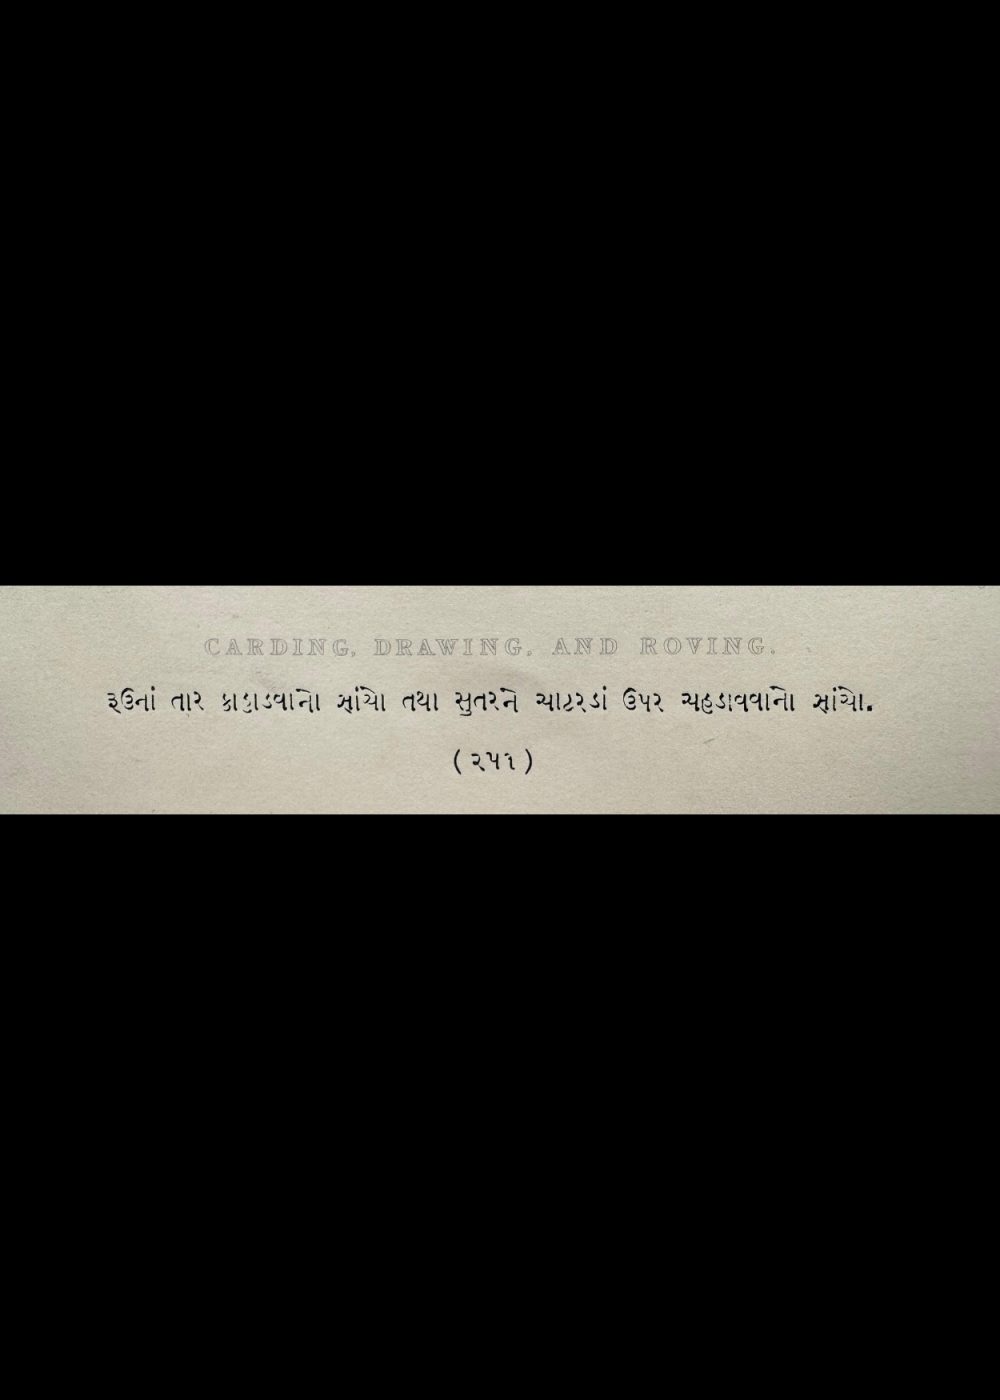 CARDING, DRAWING, AND ROVING.
રૂઉનાં તાર કાહાડવાનો સાંચો તથા સુતરને ચાટરડાં ઉપર ચહડાવવાનો સાંચો.
(૨૫૧)